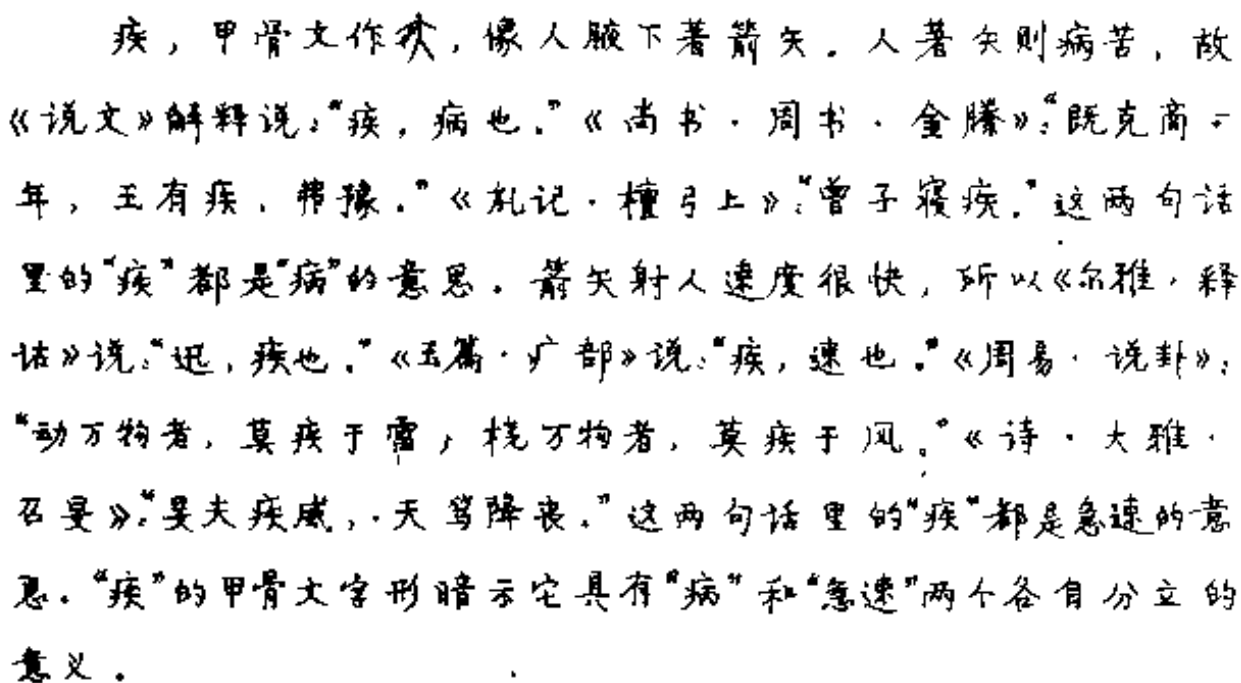 疾，甲骨文作，像人腋下著箭矢。人著矢则病苦，故
《说文》解释说：“疾，病也。”《尚书·周书·金縢》：“既克商二
年，王有疾，弗豫。”《礼记·檀弓上》：“曾子寝疾。”这两句话
里的“疾”都是“病”的意思。箭矢射人速度很快，所以《尔雅·释
诂》说：“迅，疾也。”《玉篇·疒部》说：“疾，速也。”《周易·说卦》：
“动万物者，莫疾于雷；桡万物者，莫疾于风。”《诗·大雅·
召旻》：“旻天疾威，天笃降丧。”这两句话里的“疾”都是急速的意
思。“疾”的甲骨文字形暗示它具有“病”和“急速”两个各自分立的
意义。